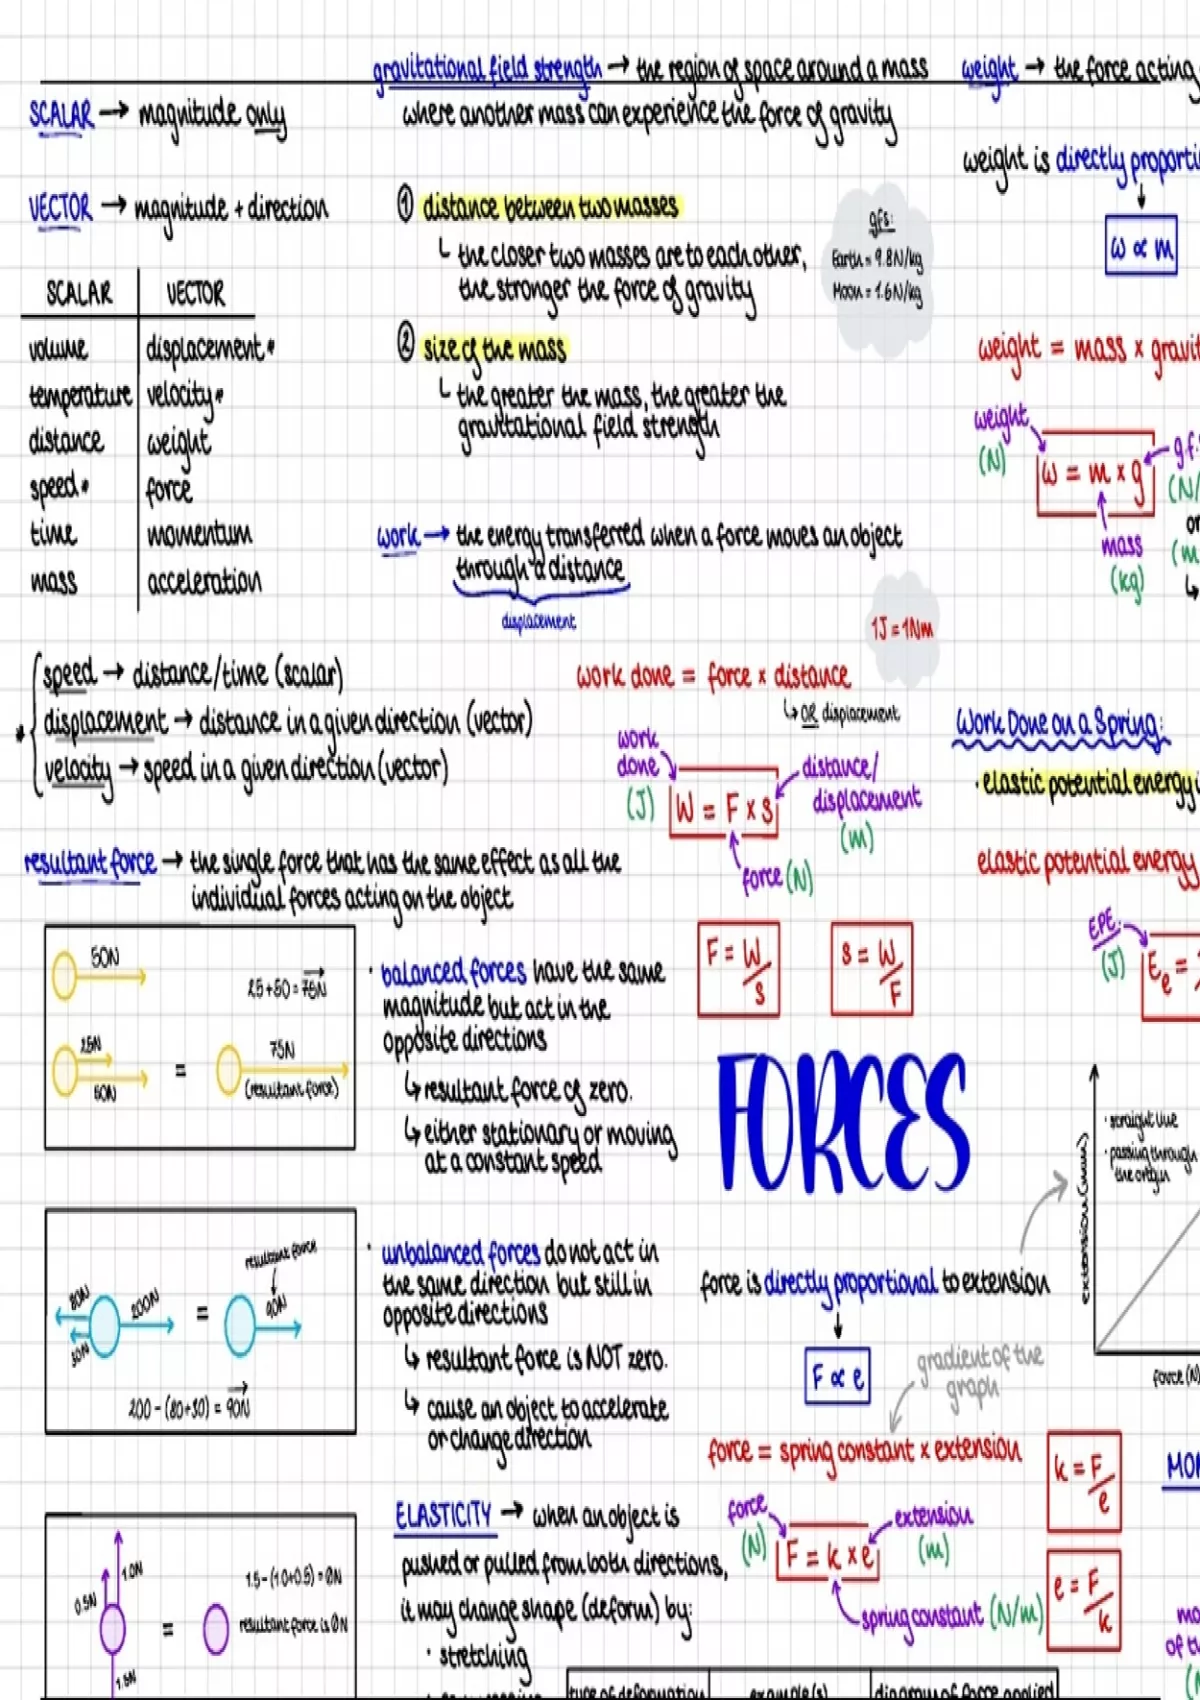 gravitational field strength → the region of space around a mass
where another mass can experience the force of gravity
weight → the force acting
SCALAR → magnitude only
VECTOR → magnitude + direction
weight is directly proporti
w ∝ m
① distance between two masses
↳ the closer two masses are to each other,
the stronger the force of gravity
gfs:
Earth = 9.8N/kg
Moon = 1.6N/kg
② size of the mass
↳ the greater the mass, the greater the
gravitational field strength
SCALAR | VECTOR
volume | displacement*
temperature | velocity*
distance | weight
speed* | force
time | momentum
mass | acceleration
weight = mass × gravit
weight
(N)
w = m × g
g.f.
(N/
or
(m
mass
(kg)
work → the energy transferred when a force moves an object
through a distance
displacement
1J = 1Nm
* speed → distance/time (scalar)
displacement → distance in a given direction (vector)
velocity → speed in a given direction (vector)
work done = force × distance
↳ OR displacement
work
done
(J)
W = F × s
distance/
displacement
(m)
force (N)
F = W/s
s = W/F
Work Done on a Spring:
· elastic potential energy i
elastic potential energy
EPE
(J)
Ee =
resultant force → the single force that has the same effect as all the
individual forces acting on the object
50N
25+50 = 75N
25N
50N
=
75N
(resultant force)
· balanced forces have the same
magnitude but act in the
opposite directions
↳ resultant force of zero.
↳ either stationary or moving
at a constant speed
FORCES
80N
30N
200N
=
resultant force
90N
200 - (80+30) = 90N
· unbalanced forces do not act in
the same direction but still in
opposite directions
↳ resultant force is NOT zero.
↳ cause an object to accelerate
or change direction
force is directly proportional to extension
F ∝ e
extension (mm)
· straight line
· passing through
the origin
force (N)
gradient of the
graph
force = spring constant × extension
force
(N)
F = k × e
extension
(m)
spring constant (N/m)
k = F/e
e = F/k
0.5N
1.0N
1.5N
=
1.5 - (1.0+0.5) = 0N
resultant force is 0N
ELASTICITY → when an object is
pushed or pulled from both directions,
it may change shape (deform) by:
· stretching
type of deformation | example(s) | diagram of force applied
MO
mo
of t